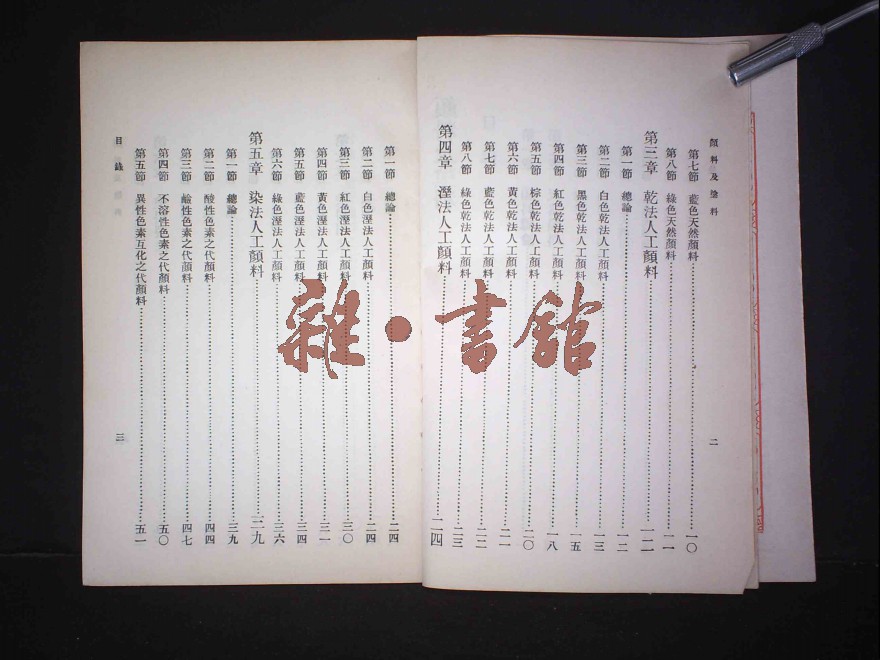 顏料及塗料
二
第七節 藍色天然顏料 一〇
第八節 綠色天然顏料 一一
第三章 乾法人工顏料 一二
第一節 總論 一二
第二節 白色乾法人工顏料 一三
第三節 黑色乾法人工顏料 一五
第四節 紅色乾法人工顏料 一八
第五節 棕色乾法人工顏料 二〇
第六節 黃色乾法人工顏料 二一
第七節 藍色乾法人工顏料 二二
第八節 綠色乾法人工顏料 二三
第四章 溼法人工顏料 二四
第一節 總論 二四
第二節 白色溼法人工顏料 二四
第三節 紅色溼法人工顏料 三〇
第四節 黃色溼法人工顏料 三一
第五節 藍色溼法人工顏料 三四
第六節 綠色溼法人工顏料 三六
第五章 染法人工顏料 三九
第一節 總論 三九
第二節 酸性色素之代顏料 四四
第三節 鹼性色素之代顏料 四七
第四節 不溶性色素之代顏料 五〇
第五節 異性色素互化之代顏料 五一
目錄
三
雜·書館